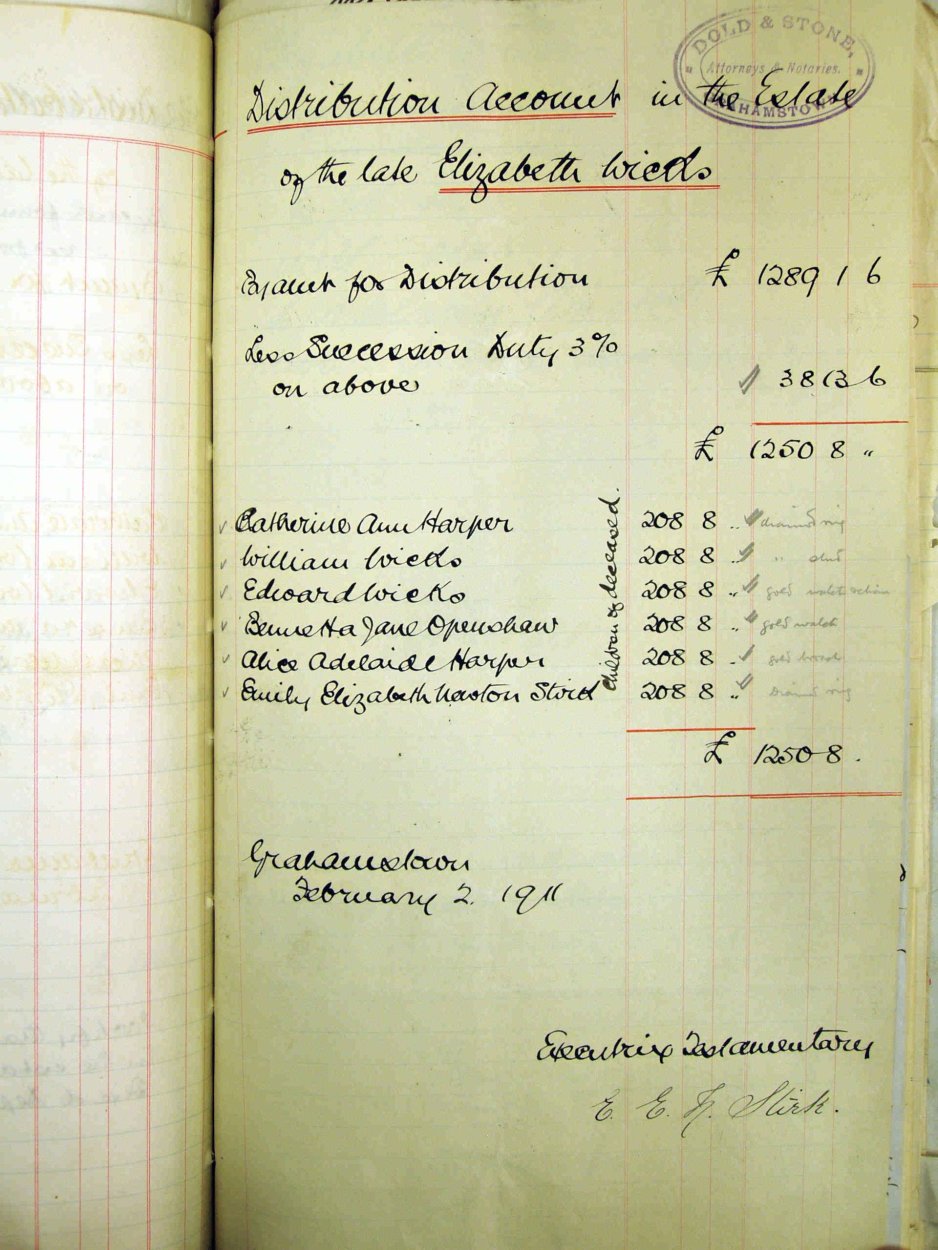 DOLD & STONE,
Attorneys & Notaries.
GRAHAMSTOWN
Distribution Account in the Estate
of the late Elizabeth Wicks
By amt for Distribution £ 1289 1 6
Less Succession Duty 3%
on above 38 13 6
£ 1250 8 "
Children of deceased.
Catherine Ann Harper 208 8 ..
William Wicks 208 8 .. "
Edward Wicks 208 8 .. gold watch chain
Bennetta Jane Openshaw 208 8 .. gold watch
Alice Adelaide Harper 208 8 .. gold
Emily Elizabeth Newton Stirk 208 8 .. ring
£ 1250 8 .
Grahamstown
February 2. 1911
Executrix Testamentary
E. E. N. Stirk.